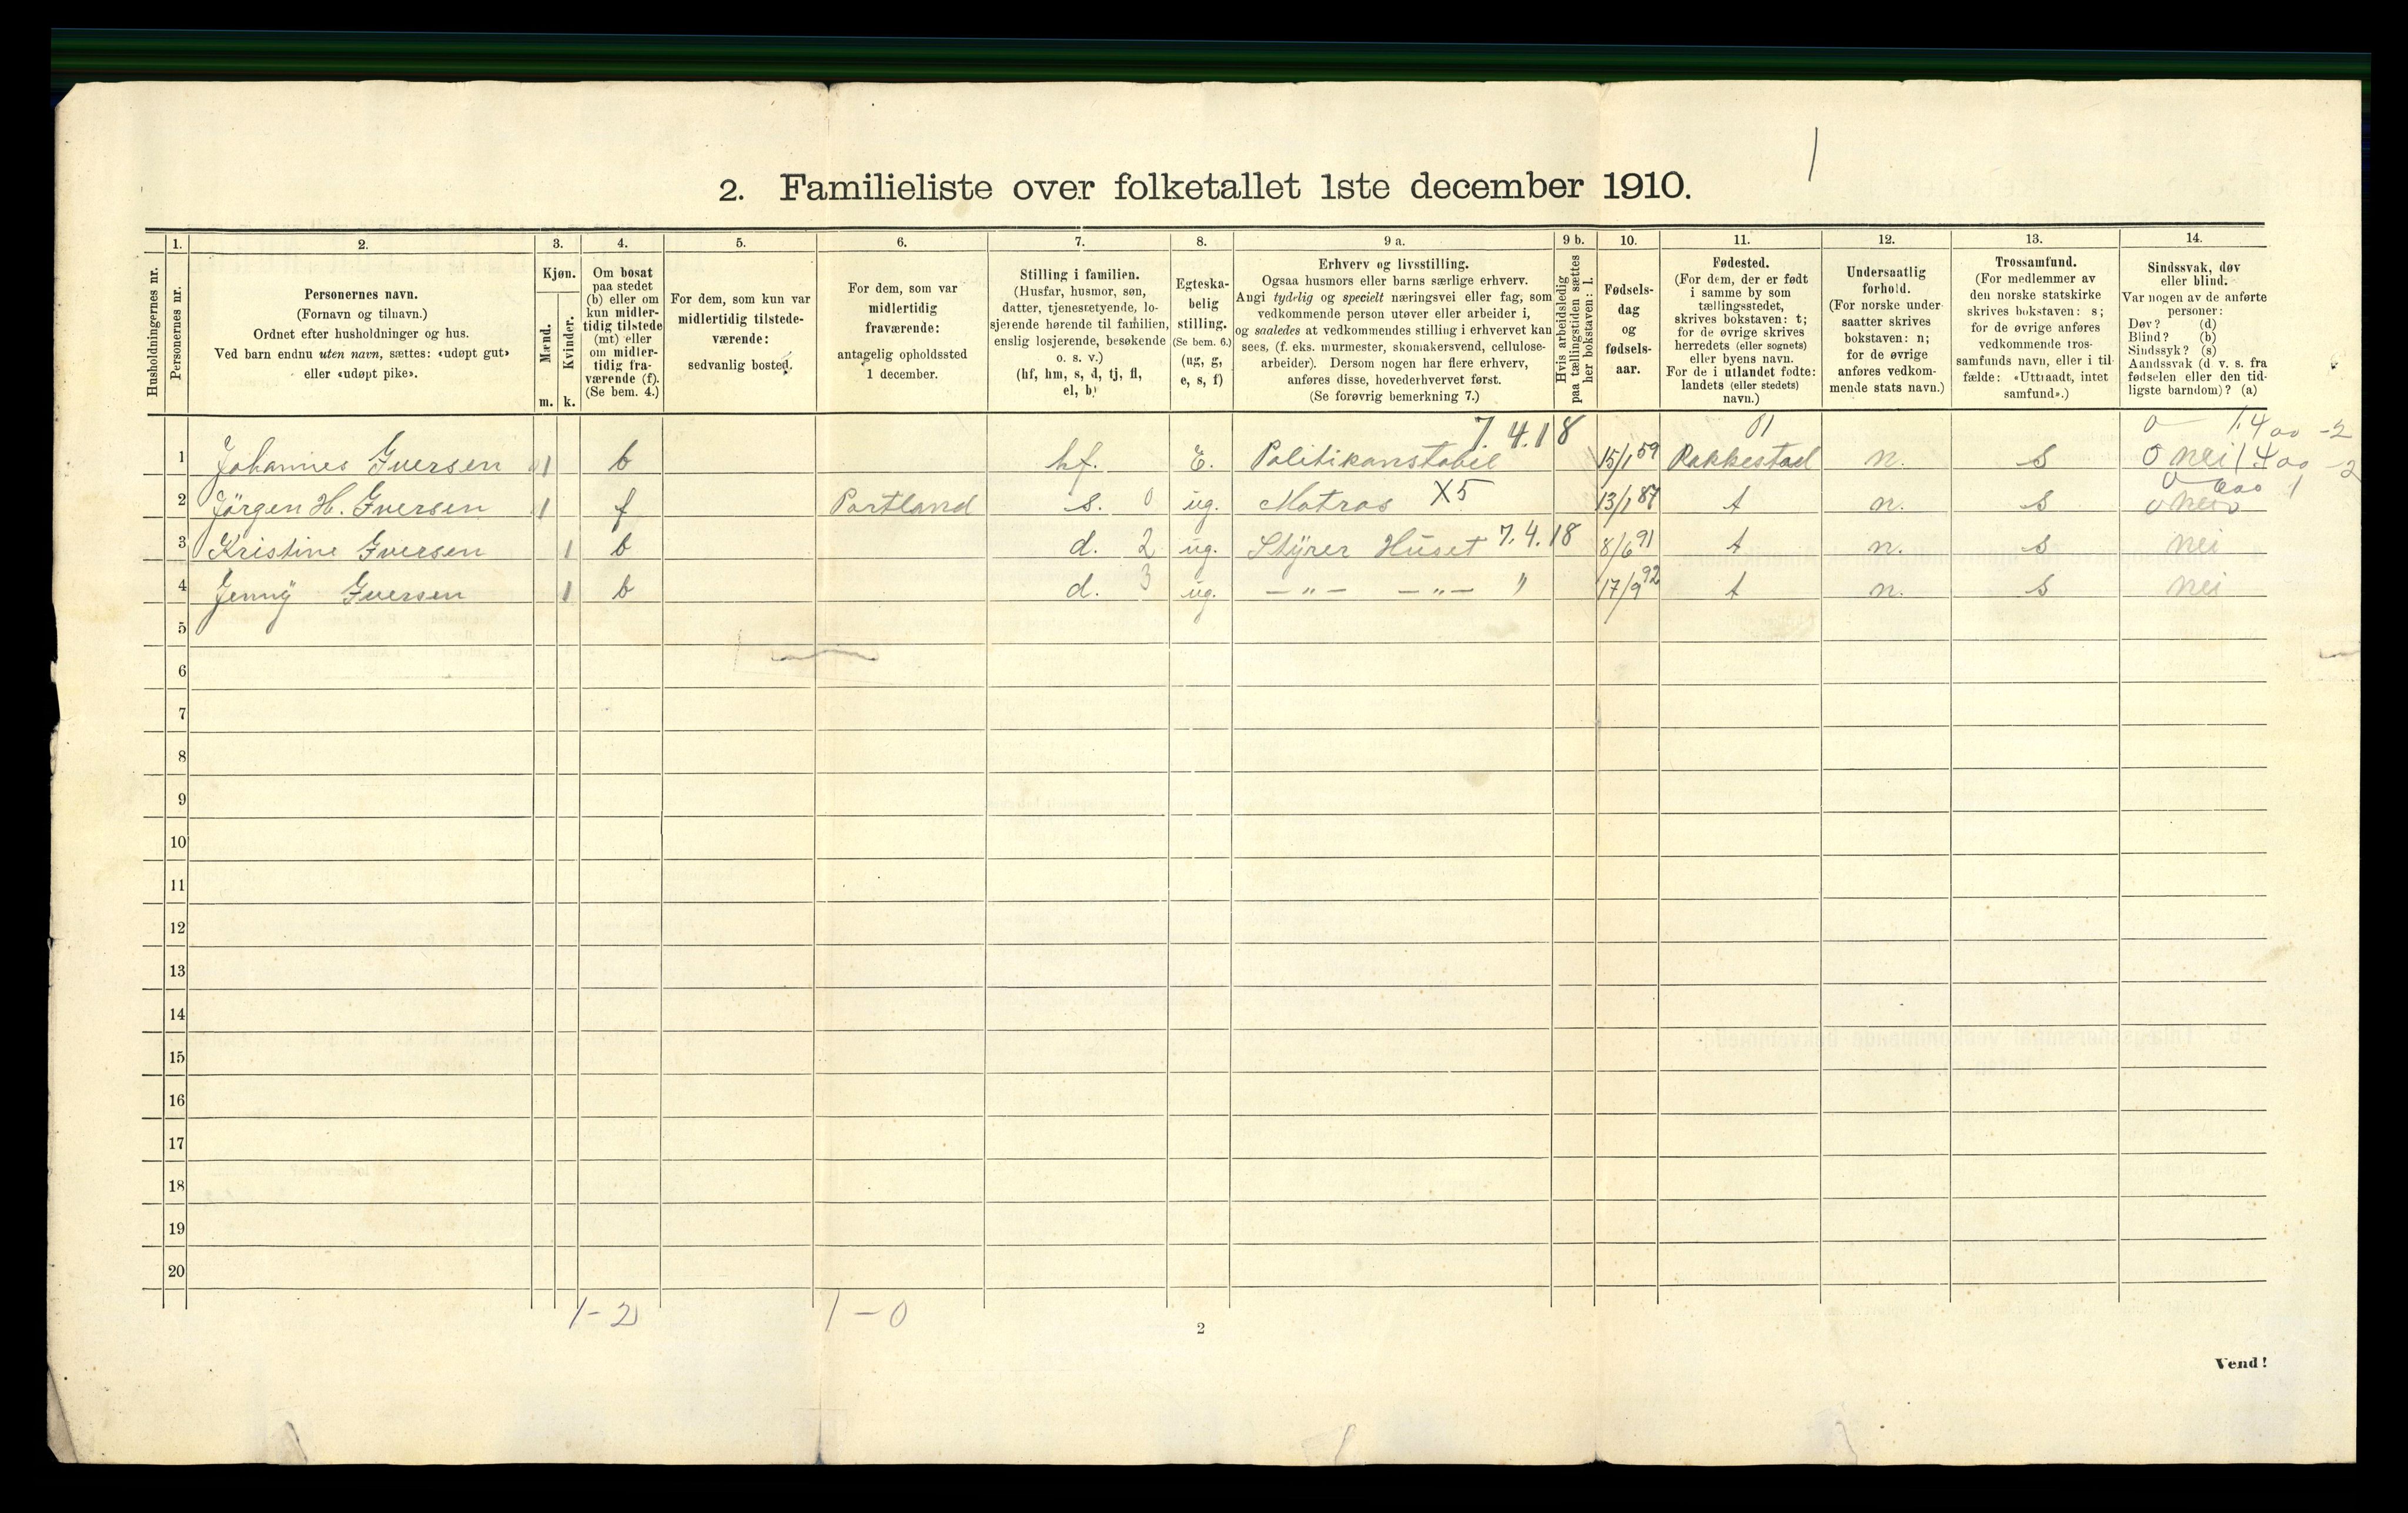 2. Familieliste over folketallet 1ste december 1910.
Husholdningernes nr.
1. Personernes nr.
2. Personernes navn.
(Fornavn og tilnavn.)
Ordnet efter husholdninger og hus.
Ved barn endnu uten navn, sættes: «udøpt gut»
eller «udøpt pike».
3. Kjøn.
Mænd. m.
Kvinder. k.
4. Om bosat
paa stedet
(b) eller om
kun midler-
tidig tilstede
(mt) eller
om midler-
tidig fra-
værende (f).
(Se bem. 4.)
5. For dem, som kun var
midlertidig tilstede-
værende:
sedvanlig bosted.
6. For dem, som var
midlertidig
fraværende:
antagelig opholdssted
1 december.
7. Stilling i familien.
(Husfar, husmor, søn,
datter, tjenestetyende, lo-
sjerende hørende til familien,
enslig losjerende, besøkende
o. s. v.)
(hf, hm, s, d, tj, fl,
el, b)
8. Egteska-
belig
stilling.
(Se bem. 6.)
(ug, g,
e, s, f)
9 a. Erhverv og livsstilling.
Ogsaa husmors eller barns særlige erhverv.
Angi tydelig og specielt næringsvei eller fag, som
vedkommende person utøver eller arbeider i,
og saaledes at vedkommendes stilling i erhvervet kan
sees, (f. eks. murmester, skomakersvend, cellulose-
arbeider). Dersom nogen har flere erhverv,
anføres disse, hovederhvervet først.
(Se forøvrig bemerkning 7.)
9 b. Hvis arbeidsledig
paa tællingstiden sættes
her bokstaven: l.
10. Fødsels-
dag
og
fødsels-
aar.
11. Fødested.
(For dem, der er født
i samme by som
tællingsstedet,
skrives bokstaven: t;
for de øvrige skrives
herredets (eller sognets)
eller byens navn.
For de i utlandet fødte:
landets (eller stedets)
navn.)
12. Undersaatlig
forhold.
(For norske under-
saatter skrives
bokstaven: n;
for de øvrige
anføres vedkom-
mende stats navn.)
13. Trossamfund.
(For medlemmer av
den norske statskirke
skrives bokstaven: s;
for de øvrige anføres
vedkommende tros-
samfunds navn, eller i til-
fælde: «Uttraadt, intet
samfund».)
14. Sindssvak, døv
eller blind.
Var nogen av de anførte
personer:
Døv? (d)
Blind? (b)
Sindssyk? (s)
Aandssvak (d. v. s. fra
fødselen eller den tid-
ligste barndom)? (a)
7.4.18 01 0 1400 -2
1 Johannes Iversen 1 b hf. E. Politikonstabel 15/1 59 Rakkestad n. s 0 nei 1400 -2
2 Jörgen H. Iversen 1 f Portland s. 0 ug. Matros X5 13/1 87 t n. s nei
3 Kristine Iversen 1 b d. 2 ug. Styrer Huset 7.4.18 8/6 91 t n. s nei
4 Jenny Iversen 1 b d. 3 ug. — " — — " — " 17/9 92 t n. s nei
5
6
7
8
9
10
11
12
13
14
15
16
17
18
19
20
1-2 1-0
2
Vend!